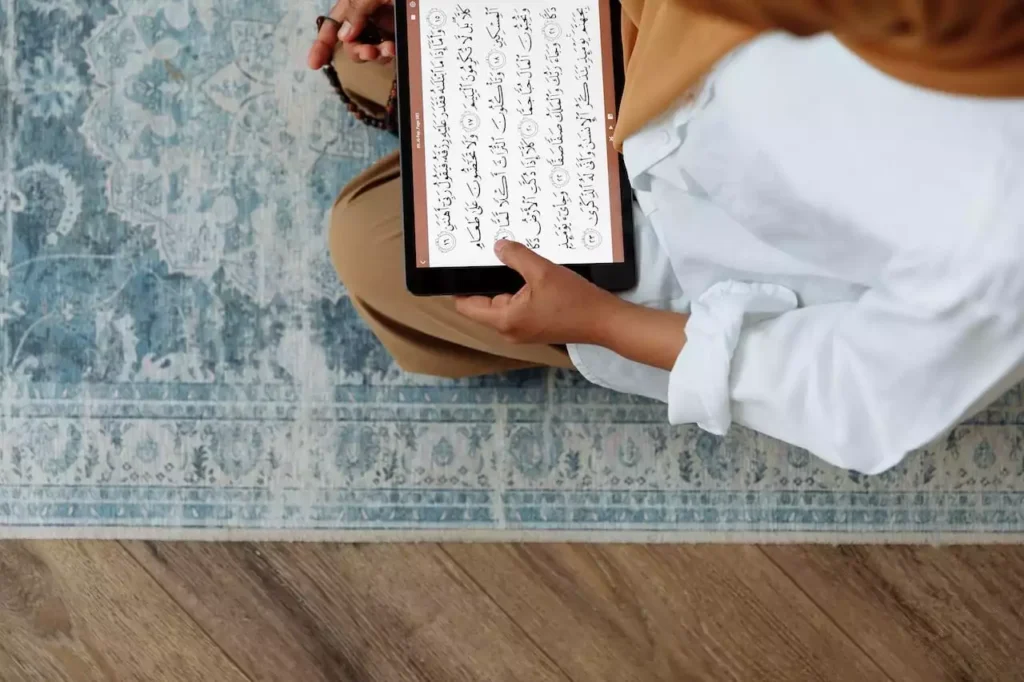 Al-Fajr, Page
١٥ وَأَمَّآ إِذَا مَا ٱبْتَلَىٰهُ فَقَدَرَ عَلَيْهِ رِزْقَهُۥ فَيَقُولُ رَبِّىٓ أَهَٰنَنِ ١٦
كَلَّا ۖ بَل لَّا تُكْرِمُونَ ٱلْيَتِيمَ ١٧ وَلَا تَحَٰٓضُّونَ عَلَىٰ طَعَامِ
ٱلْمِسْكِينِ ١٨ وَتَأْكُلُونَ ٱلتُّرَاثَ أَكْلًا لَّمًّا ١٩
وَتُحِبُّونَ ٱلْمَالَ حُبًّا جَمًّا ٢٠ كَلَّآ إِذَا دُكَّتِ ٱلْأَرْضُ دَكًّا
دَكًّا ٢١ وَجَآءَ رَبُّكَ وَٱلْمَلَكُ صَفًّا صَفًّا ٢٢ وَجِا۟ىٓءَ يَوْمَئِذٍۭ
بِجَهَنَّمَ ۚ يَوْمَئِذٍ يَتَذَكَّرُ ٱلْإِنسَٰنُ وَأَنَّىٰ لَهُ ٱلذِّكْرَىٰ ٢٣